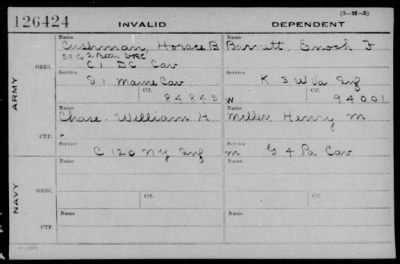 126424 INVALID DEPENDENT (3-H-3)
Name Name
Cushman, Horace B Barrett, Enoch F
50 Co 2 Batt VRC
ORIG. C 1 DC Cav
Service Service
D 1 Maine Cav K 3 W Va Inf
Ctf. Ctf.
84845 W 94001
ARMY
Name Name
Chase William H Miller Henry M
CTF.
Service Service
C 120 NY Inf M G 4 Pa Cav
Name Name
ORIG.
Service Ctf. Service Ctf.
NAVY
Name Name
CTF.